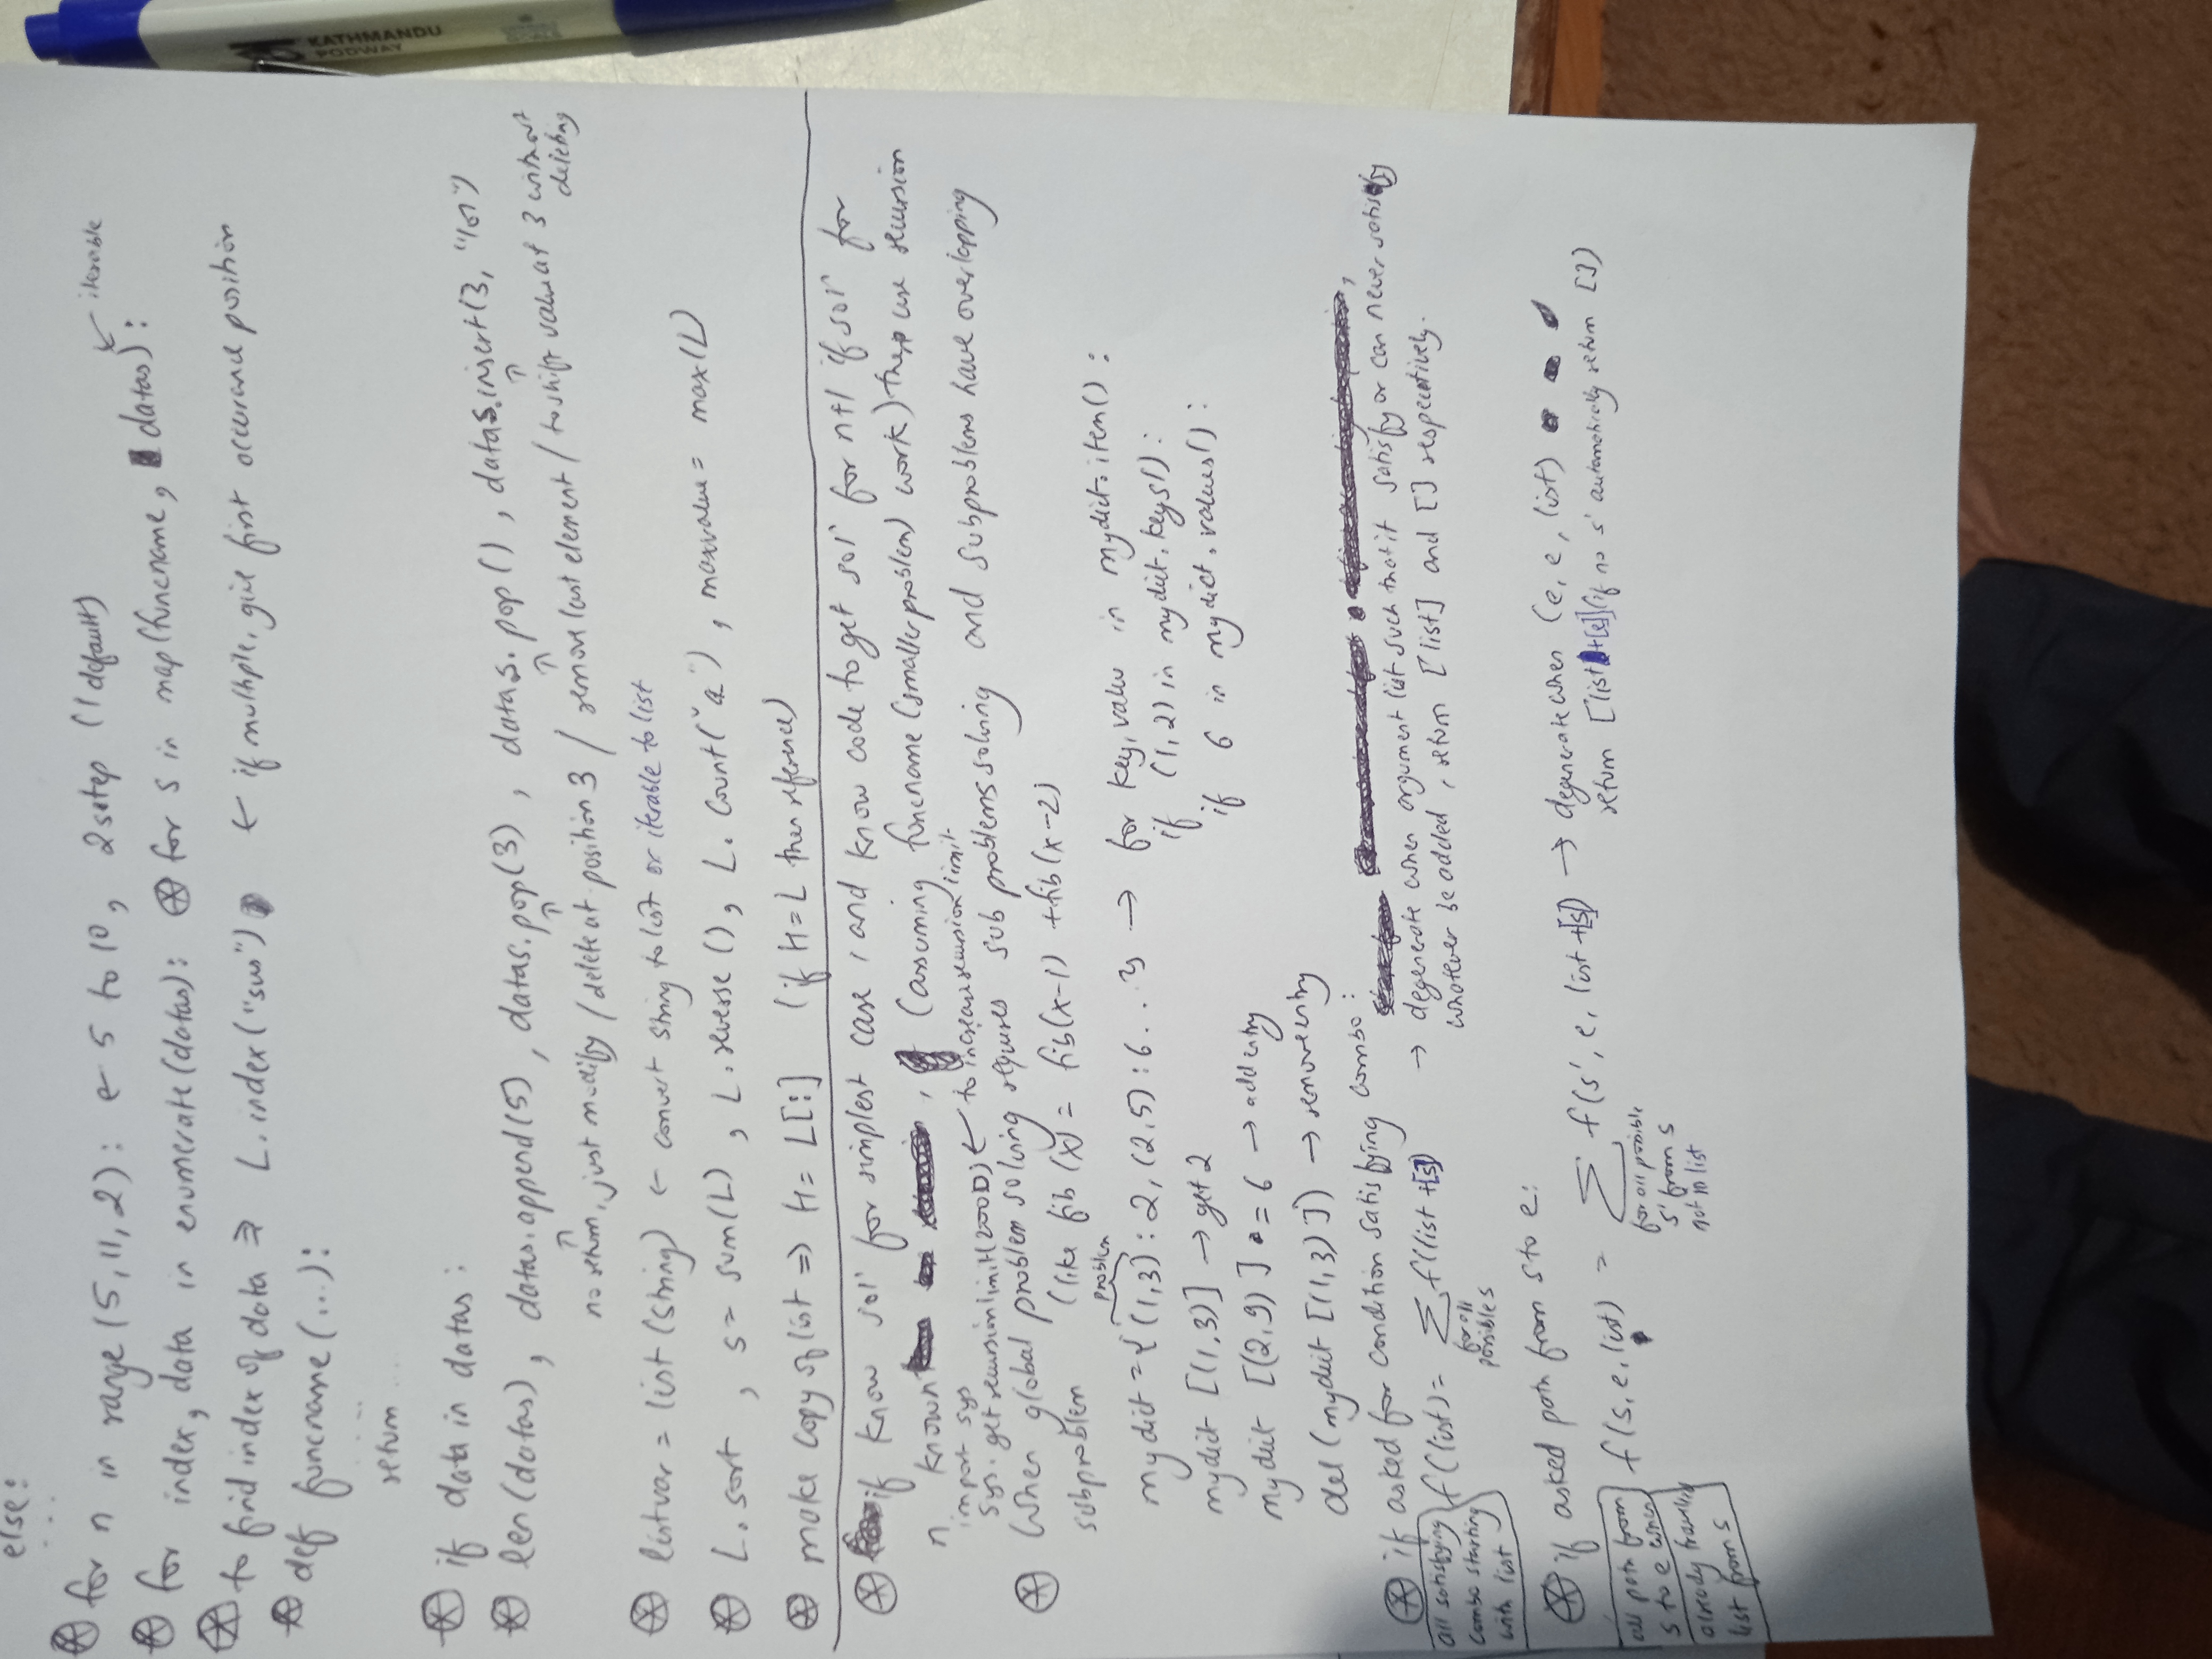 else:
...
⊛ for n in range (5, 11, 2): ← 5 to 10, 2 setep (1 default)
iterable
⊛ for index, data in enumerate (datas): ⊛ for s in map (funcname, datas):
⊛ to find index of data ⇒ L.index ("sus") ← if multiple, give first occurance position
⊛ def funcname (...):
.....
return ...
⊛ if data in datas :
⊛ len (datas), datas.append (5), datas.pop (3), datas.pop (), datas.insert (3, "lol")
no return, just modify / delete at position 3 / remove last element / to shift value at 3 without deleting
⊛ listvar = list (string) ← convert string to list or iterable to list
⊛ L.sort, s = sum(L), L.reverse (), L.count ("a"), maxvalue = max (L)
⊛ make copy of list => H = L[:] (if H = L then reference)
⊛ if know solⁿ for simplest case, and know code to get solⁿ for n+1 if solⁿ for
n known, (assuming funcname (smaller problem) work) then use recursion
import sys
sys.getrecursionlimit(2000) ← to increase recursion limit
⊛ When global problem solving requires sub problems solving and subproblems have overlapping
subproblem (like fib (x) = fib(x-1) + fib (x-2)
problem
mydict = { (1,3) : 2, (2,5) : 6 ... } → for key, value in mydict.item() :
if (1,2) in mydict.keys() :
mydict [(1,3)] → get 2
if 6 in mydict.values() :
mydict [(2,9)] = 6 → add entry
del (mydict [(1,3)]) → remove entry
⊛ if asked for condition satisfying combo :
all satisfying combo starting with list
f (list) = Σ f(list +[s]) → degenerate when argument list such that it satisfy or can never satisfy
for all possible s
whatever be added, return [list] and [] respectively.
⊛ if asked path from s to e:
all path from s to e when already travelled list from s
f (s, e, list) = Σ f (s', e, list +[s]) → degenerate when (e, e, list)
for all possible s' from s not in list
return [list +[e]] (if no s' automatically return [])
KATHMANDU